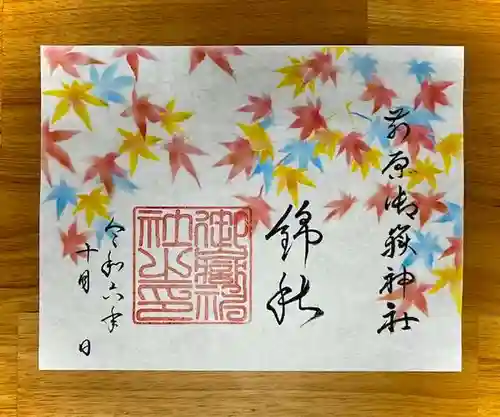 前原御嶽神社
錦秋
御嶽神社之印
令和六年
十月 日